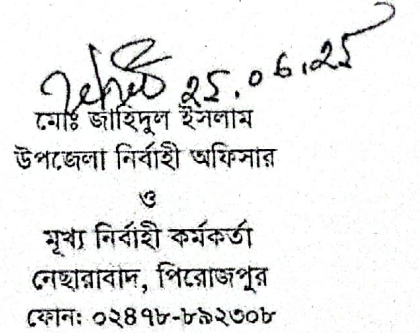 ২৫.০৬.২৫
মোঃ জাহিদুল ইসলাম
উপজেলা নির্বাহী অফিসার
ও
মূখ্য নির্বাহী কর্মকর্তা
নেছারাবাদ, পিরোজপুর
ফোন: ০২৪৭৮-৮৯২৩০৮